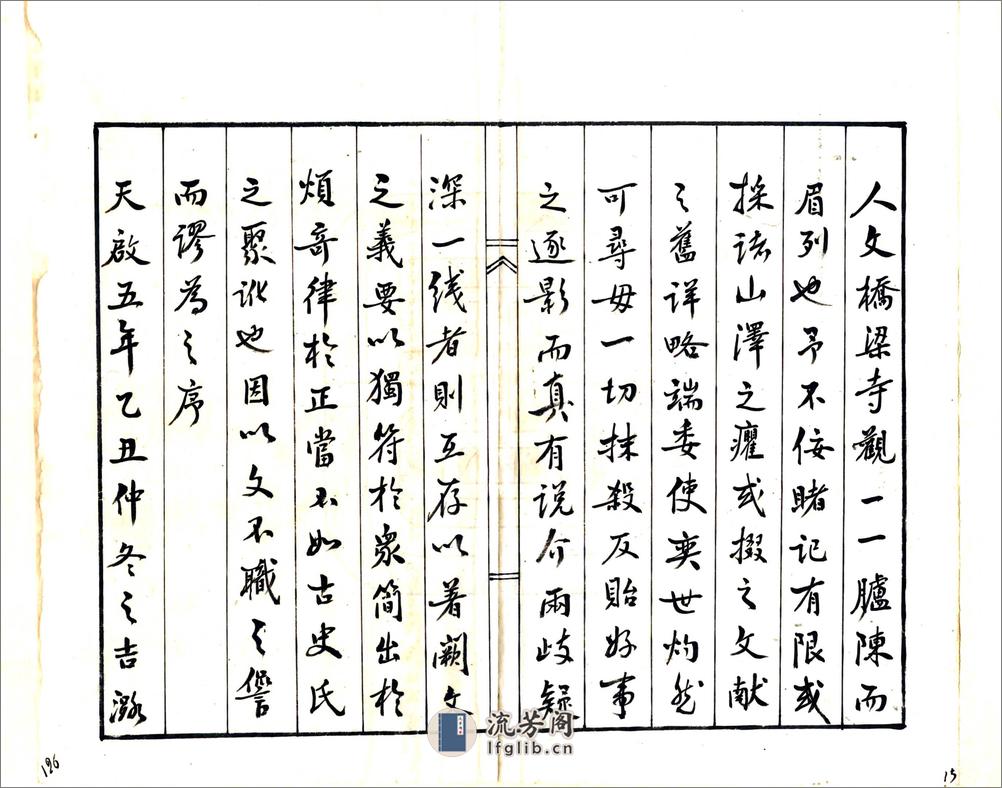 人文橋梁寺觀一一臚陳而
眉列也予不佞睹記有限或
採諸山澤之癯或掇之文献
之舊詳略端委使奕世灼然
可尋毋一切抹殺反貽好事
之逐影而真有説介兩歧疑
深一线者則互存以著闕文
之義要以獨符於衆簡出於
煩奇律於正當不如古史氏
之聚訟也因以文不職之譽
而谬為之序
天啟五年乙丑仲冬之吉潞
流芳阁
lfglib.cn
196
15